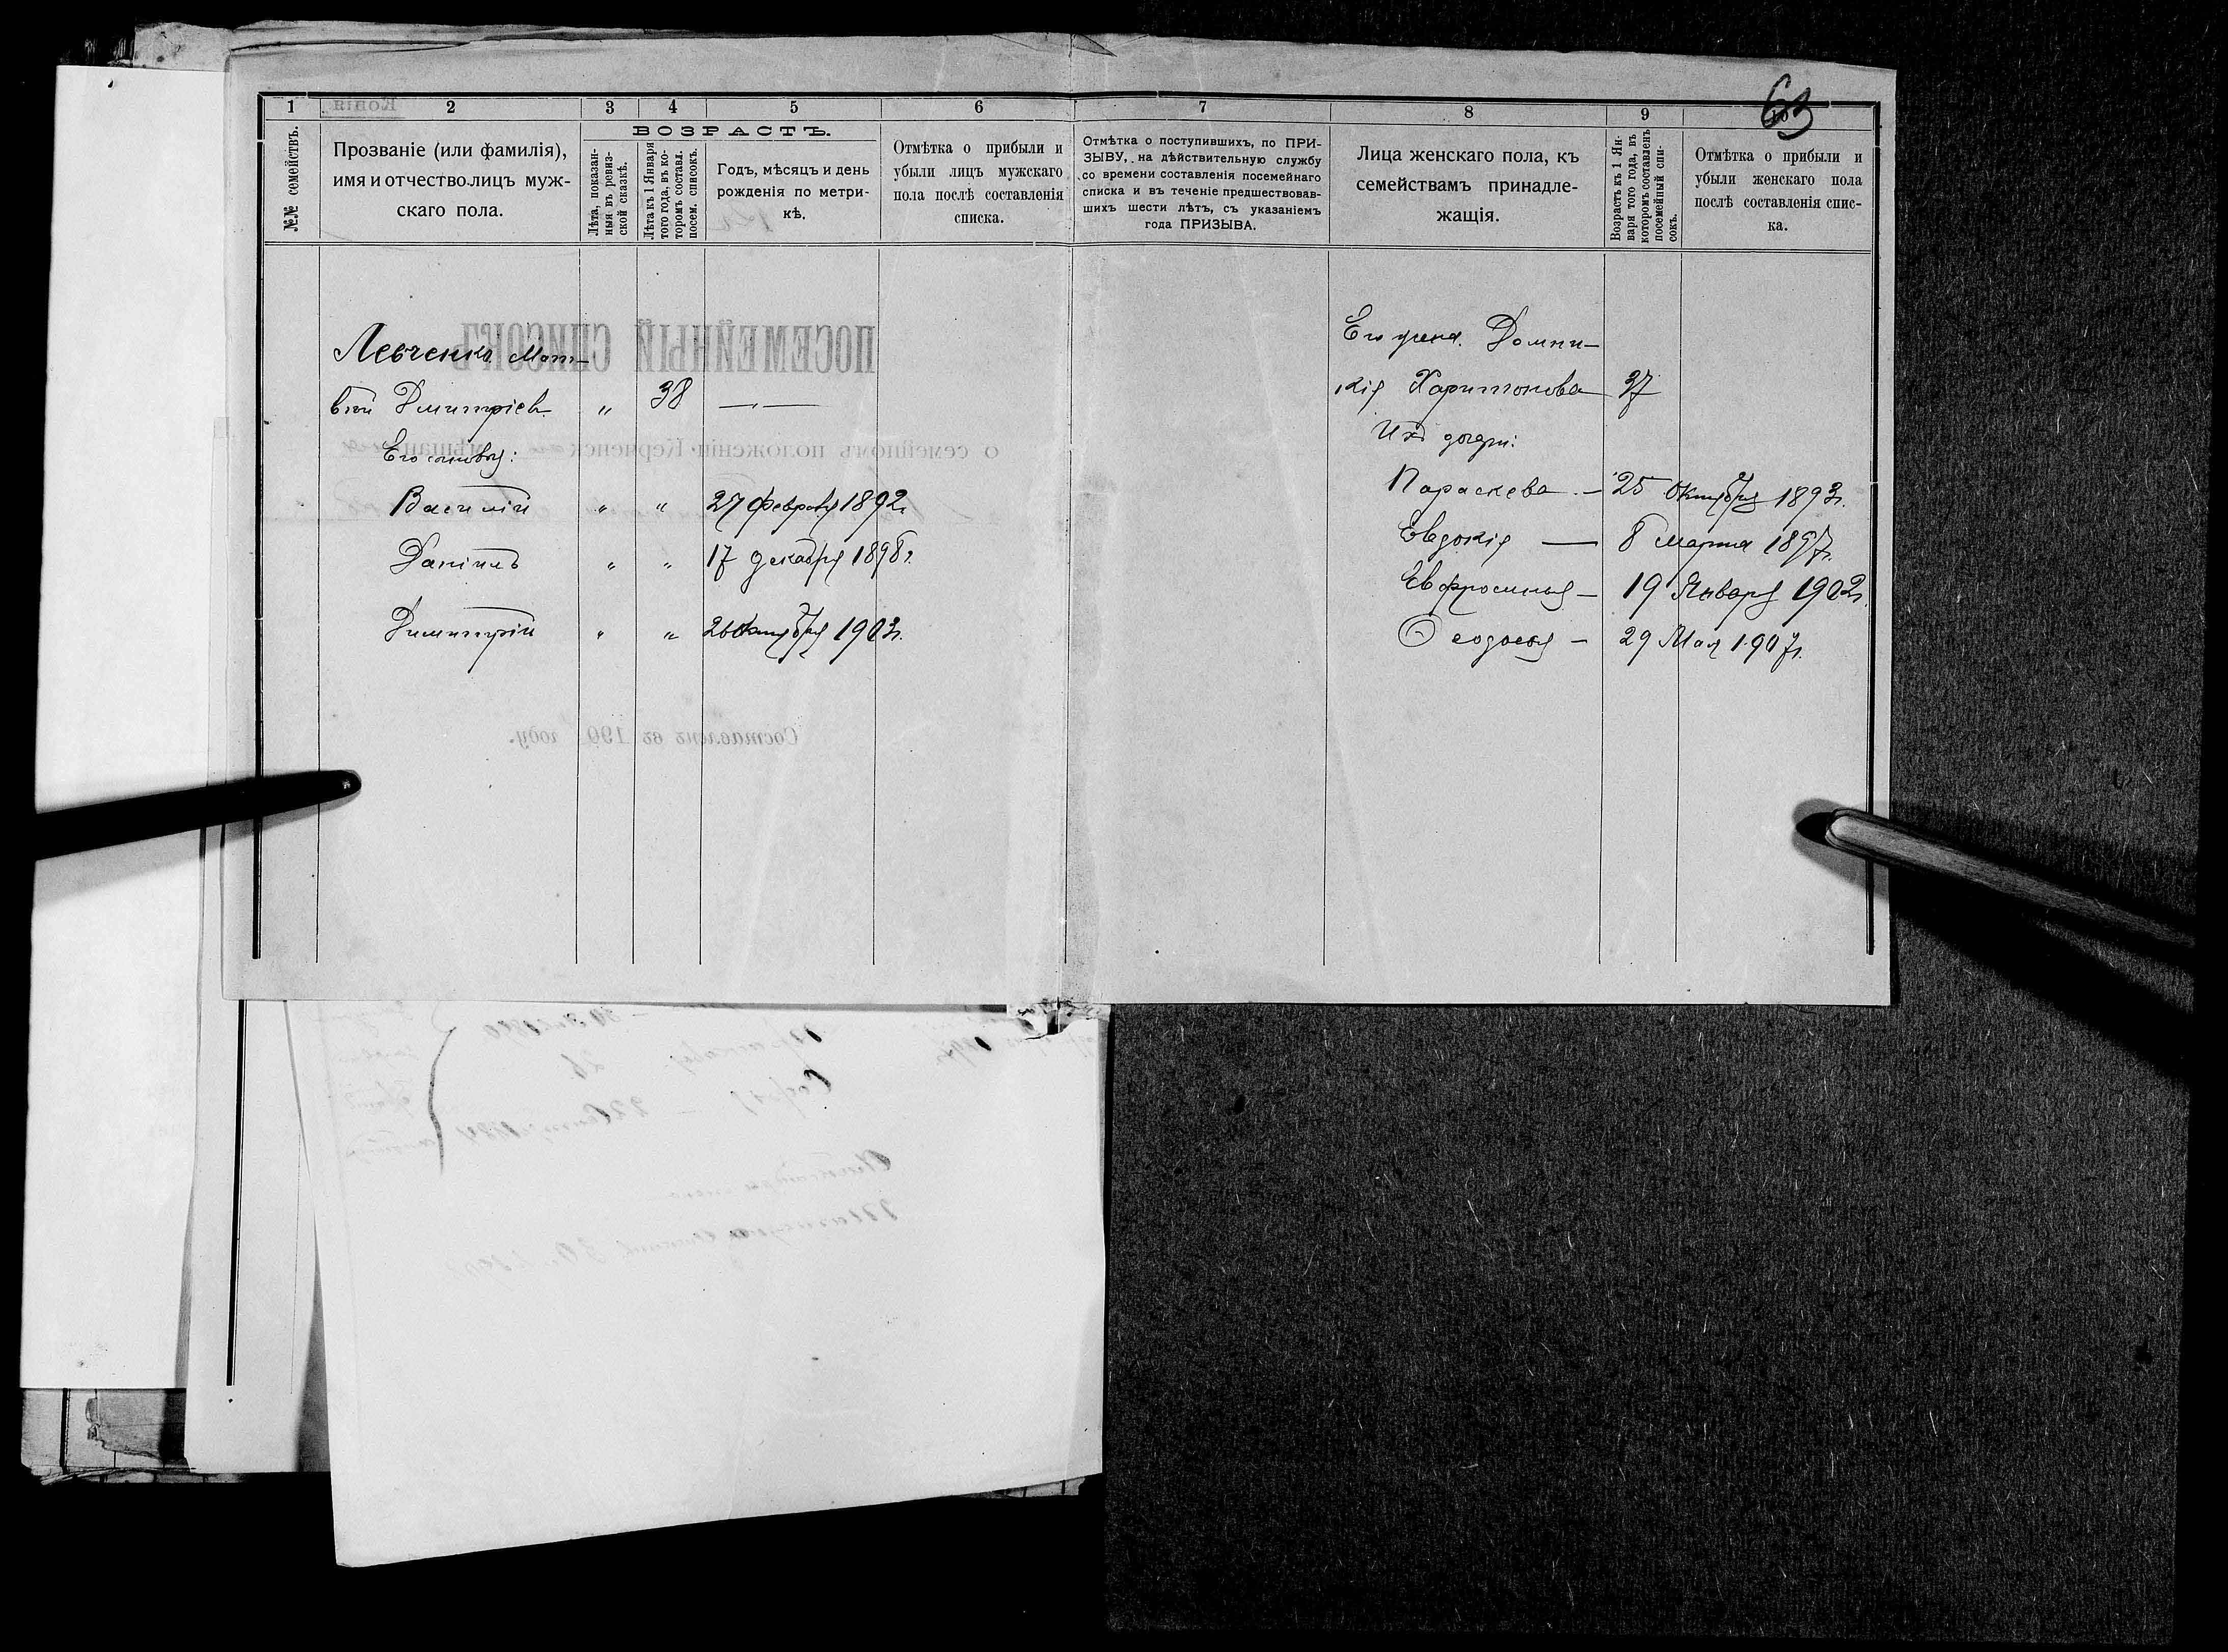 63
1 2 3 4 5 6 7 8 9
№№ семействъ.
Прозваніе (или фамилія),
имя и отчество лицъ муж-
скаго пола.
ВОЗРАСТЪ.
Лѣта, показан-
ныя въ ревиз-
ской сказкѣ.
Лѣта къ 1 Января
того года, въ ко-
торомъ составл.
посем. списокъ.
Годъ, мѣсяцъ и день
рожденія по метри-
кѣ.
Отмѣтка о прибыли и
убыли лицъ мужскаго
пола послѣ составленія
списка.
Отмѣтка о поступившихъ, по ПРИ-
ЗЫВУ, на дѣйствительную службу
со времени составленія посемейнаго
списка и въ теченіе предшествовав-
шихъ шести лѣтъ, съ указаніемъ
года ПРИЗЫВА.
Лица женскаго пола, къ
семействамъ принадле-
жащія.
Возрастъ къ 1 Ян-
варя того года, въ
которомъ составленъ
посемейный спи-
сокъ.
Отмѣтка о прибыли и
убыли женскаго пола
послѣ составленія спис-
ка.
Левченко Мат-
вѣй Димитріев. " 38 —"—
Его сыновья:
Василій " " 27 Февраля 1892г.
Даніилъ " " 17 декабря 1898г.
Димитрій " " 26 Октября 1903г.
Его жена Домни-
кія Харитонова 37
Ихъ дочери:
Параскева — 25 Октября 1893г.
Евдокія — 8 марта 1897г.
Евфросинья — 19 Января 1902г.
Ѳеодосья — 29 Мая 1907г.
Копія
ПОСЕМЕЙНЫЙ СПИСОКЪ
о семейномъ положеніи Керченск
Составленъ въ 190 году.